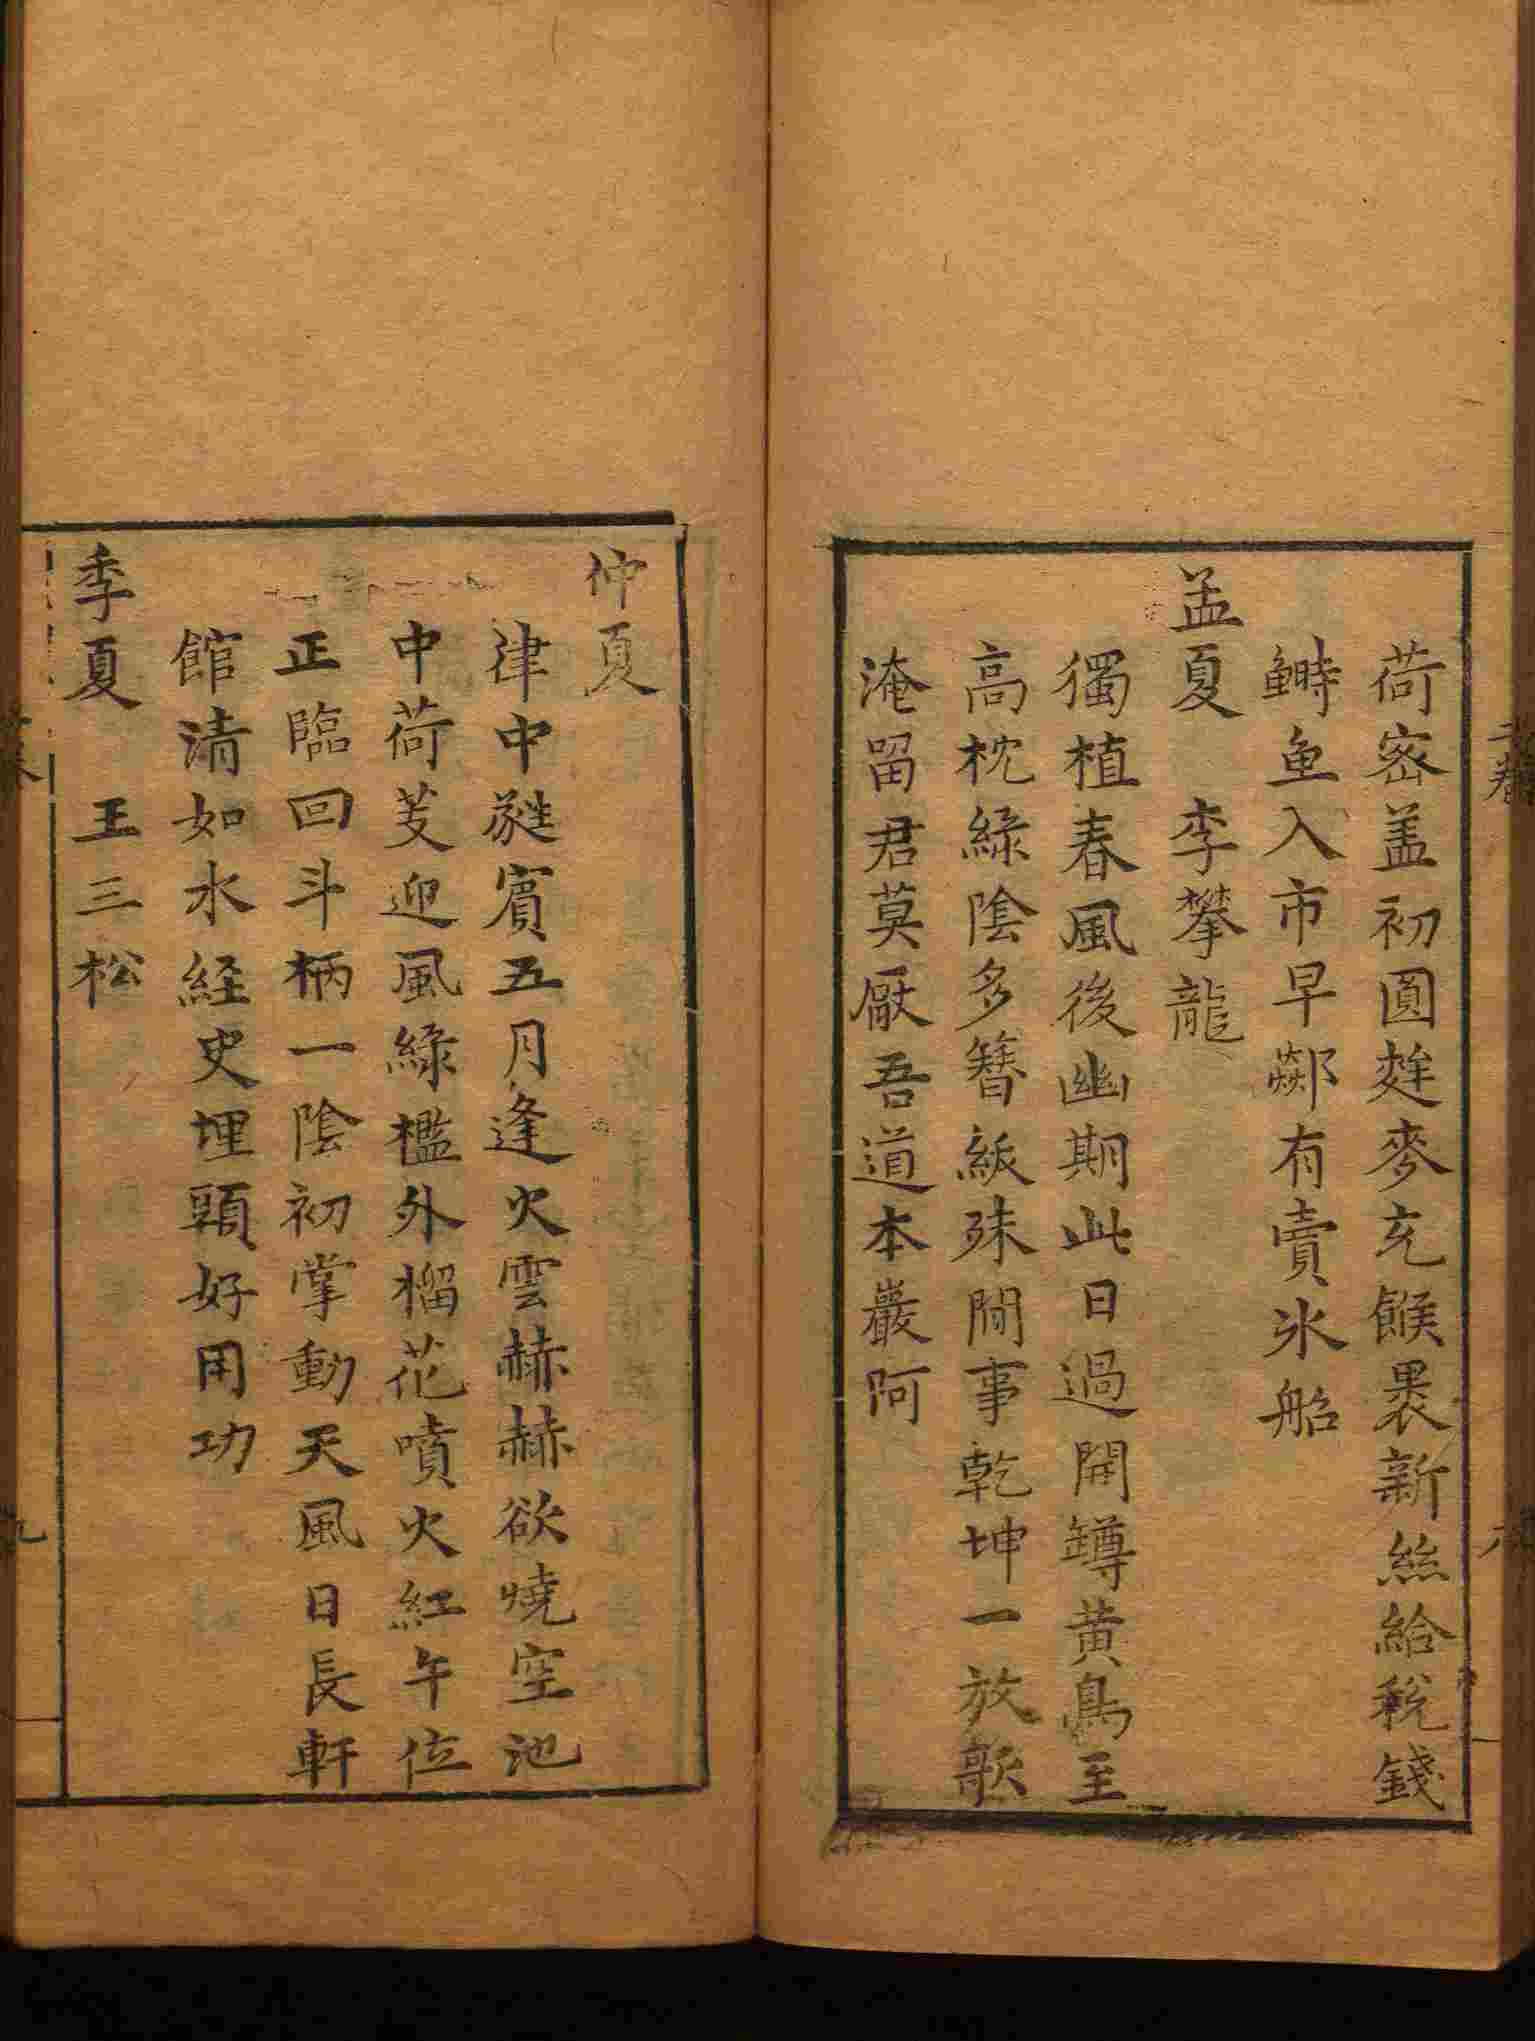 荷密盖初圓麰麥充餱裹新絲給稅錢
鰣魚入市早鄰有賣氷船
孟夏 李攀龍
獨植春風後幽期此日過開罇黄鳥至
高枕綠陰多簪紱殊間事乾坤一放歌
淹留君莫厭吾道本巖阿
仲夏
律中蕤賓五月逢火雲赫赫欲燒空池
中荷芰迎風綠檻外榴花噴火紅午位
正臨回斗柄一陰初掌動天風日長軒
館清如水経史埋頭好用功
季夏 王三松
二卷
八
九